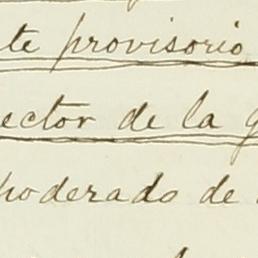 te provisorio
ector de la g
poderado de